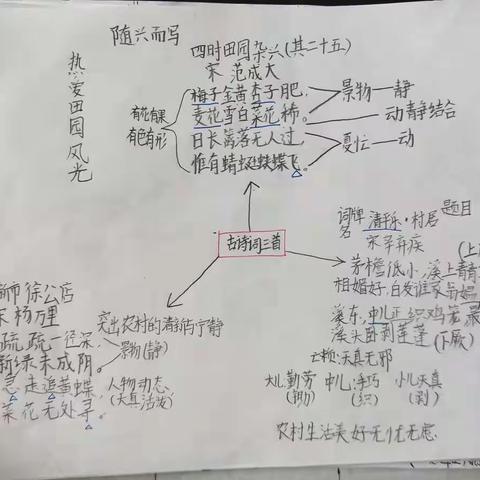 随兴而写
热爱田园风光
四时田园杂兴(其二十五)
宋 范成大
梅子金黄杏子肥,
麦花雪白菜花稀。
日长篱落无人过,
惟有蜻蜓蛱蝶飞。
有花有果
有色有形
景物—静
动静结合
夏忙—动
古诗词三首
词牌名
清平乐·村居
题目
宋 辛弃疾
茅檐低小,溪上青青
相媚好,白发谁家翁媪
(上
溪东,中儿正织鸡笼
溪头卧剥莲蓬
(下阕)
亡赖:天真无邪
大儿:勤劳
(锄)
中儿:手巧
(织)
小儿:天真
(剥)
农村生活美好无忧无虑
师徐公店
宋 杨万里
疏疏一径深,
新绿未成阴。
急走追黄蝶,
菜花无处寻。
突出农村的清新与宁静
景物(静)
人物动态,
(天真活泼)